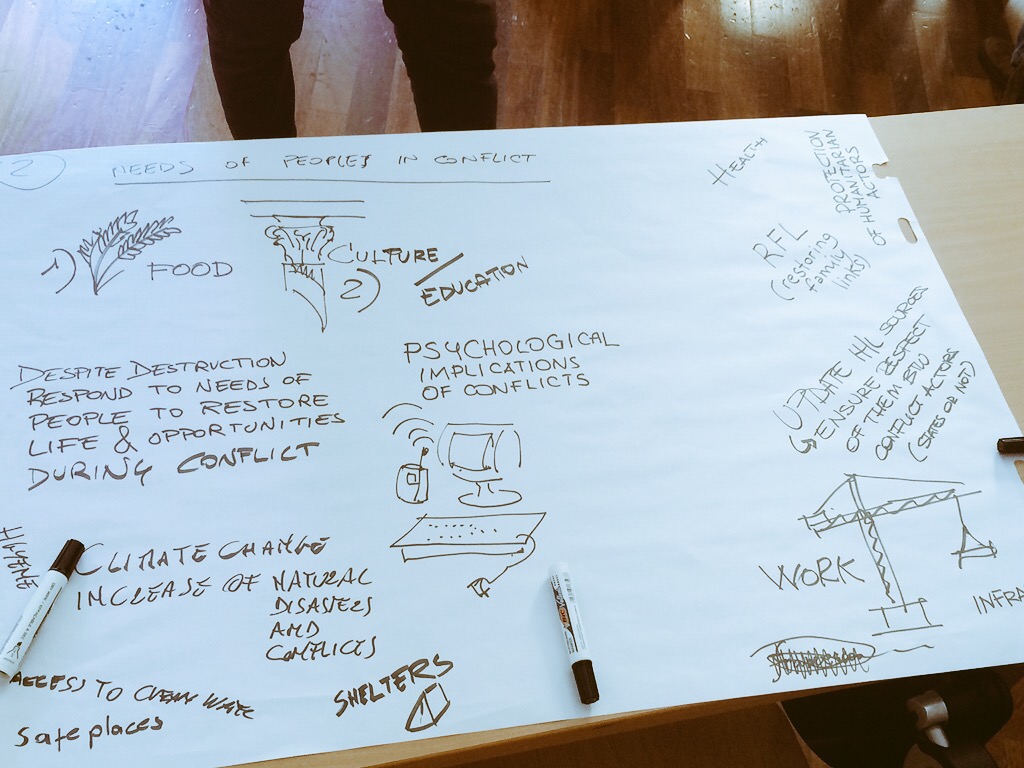 2
NEEDS OF PEOPLES IN CONFLICT
1)
FOOD
CULTURE
2)
EDUCATION
DESPITE DESTRUCTION
RESPOND TO NEEDS OF
PEOPLE TO RESTORE
LIFE & OPPORTUNITIES
DURING CONFLICT
PSYCHOLOGICAL
IMPLICATIONS
OF CONFLICTS
HYGIENE
CLIMATE CHANGE
INCREASE OF NATURAL
DISASTERS
AND
CONFLICTS
ACCESS TO CLEAN WATER
safe places
SHELTERS
HEALTH
PROTECTION
OF HUMANITARIAN
ACTORS
RFL
(restoring
family
links)
UPDATE IHL SOURCES
ENSURE RESPECT
OF THEM BTW
CONFLICT ACTORS
(STATES OR NOT)
WORK
INFRA